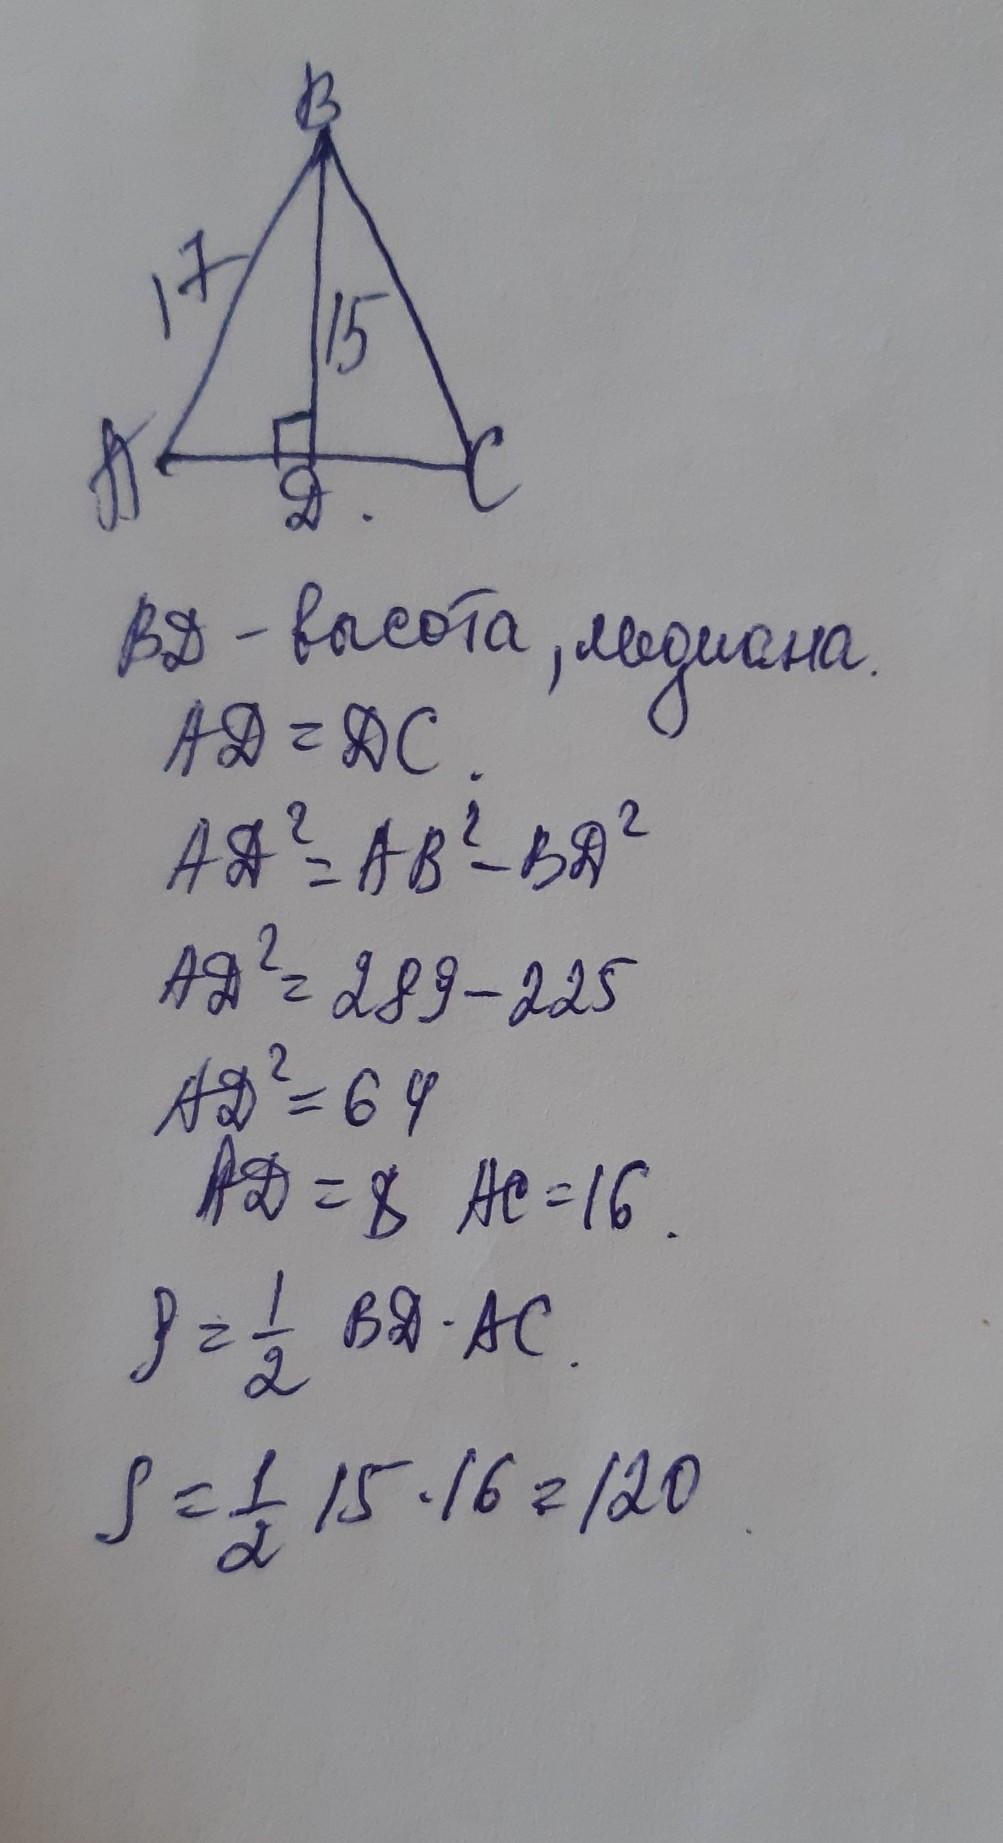 B
17
15
A
D.
C
BD - высота, медиана.
AD = DC.
AD² = AB² - BD²
AD² = 289 - 225
AD² = 64
AD = 8 AC = 16.
S = 1/2 BD · AC.
S = 1/2 15 · 16 = 120